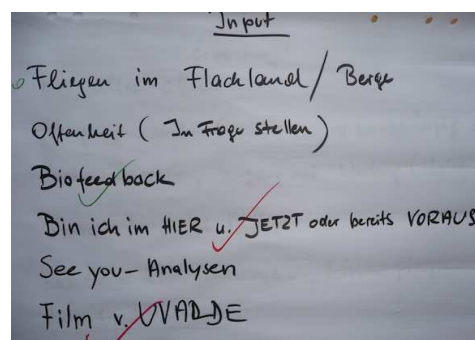 Input
Fliegen im Flachland / Berge
Offenheit ( In Frage stellen )
Biofeedback
Bin ich im HIER u. JETZT oder bereits VORAUS
See you - Analysen
Film v. UVADDE